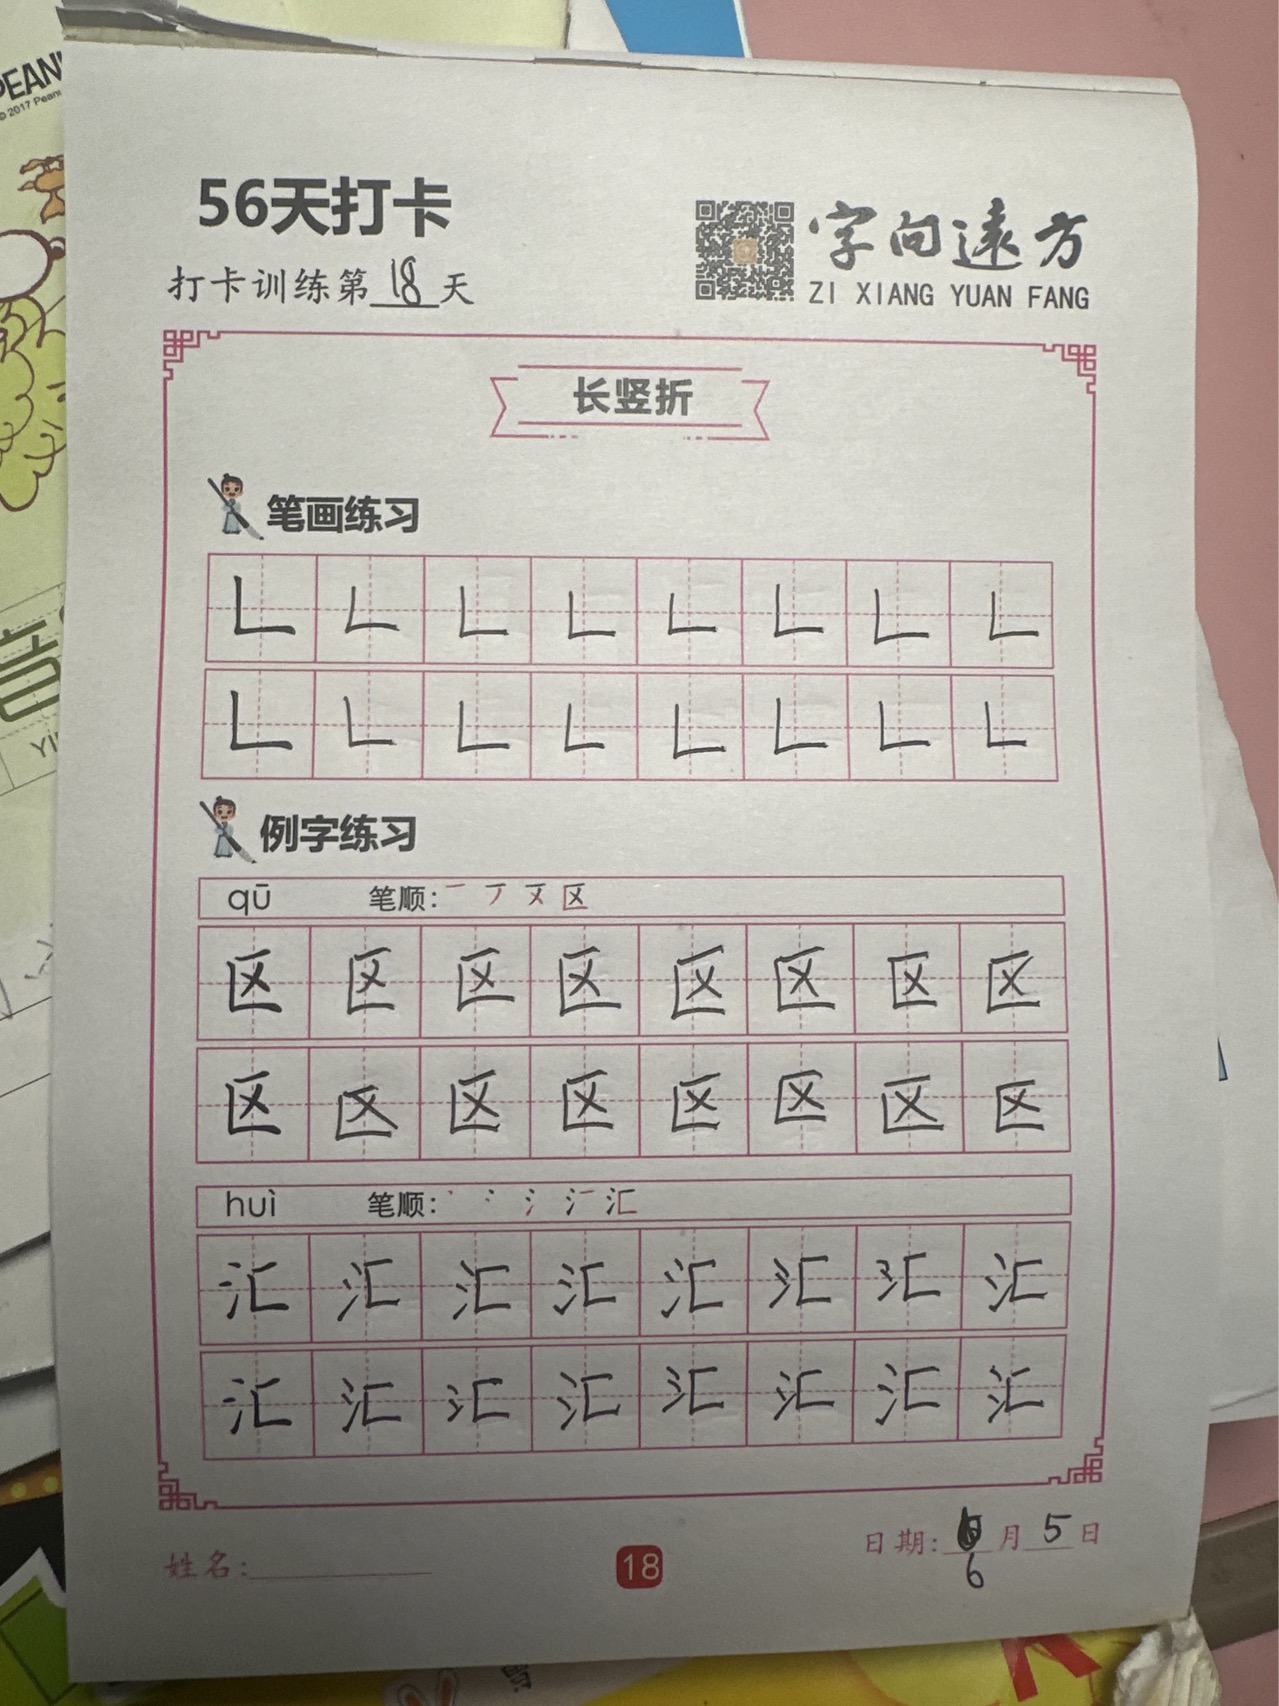 PEAN
© 2017 Pean
56天打卡
打卡训练第18天
字向遠方
ZI XIANG YUAN FANG
长竖折
笔画练习
𠃊 𠃊 𠃊 𠃊 𠃊 𠃊 𠃊 𠃊
𠃊 𠃊 𠃊 𠃊 𠃊 𠃊 𠃊 𠃊
例字练习
qū 笔顺: 区
区 区 区 区 区 区 区 区
区 区 区 区 区 区 区 区
huì 笔顺: 氵 汇
汇 汇 汇 汇 汇 汇 汇 汇
汇 汇 汇 汇 汇 汇 汇 汇
日期: 6月5日
姓名:
18
音
YI